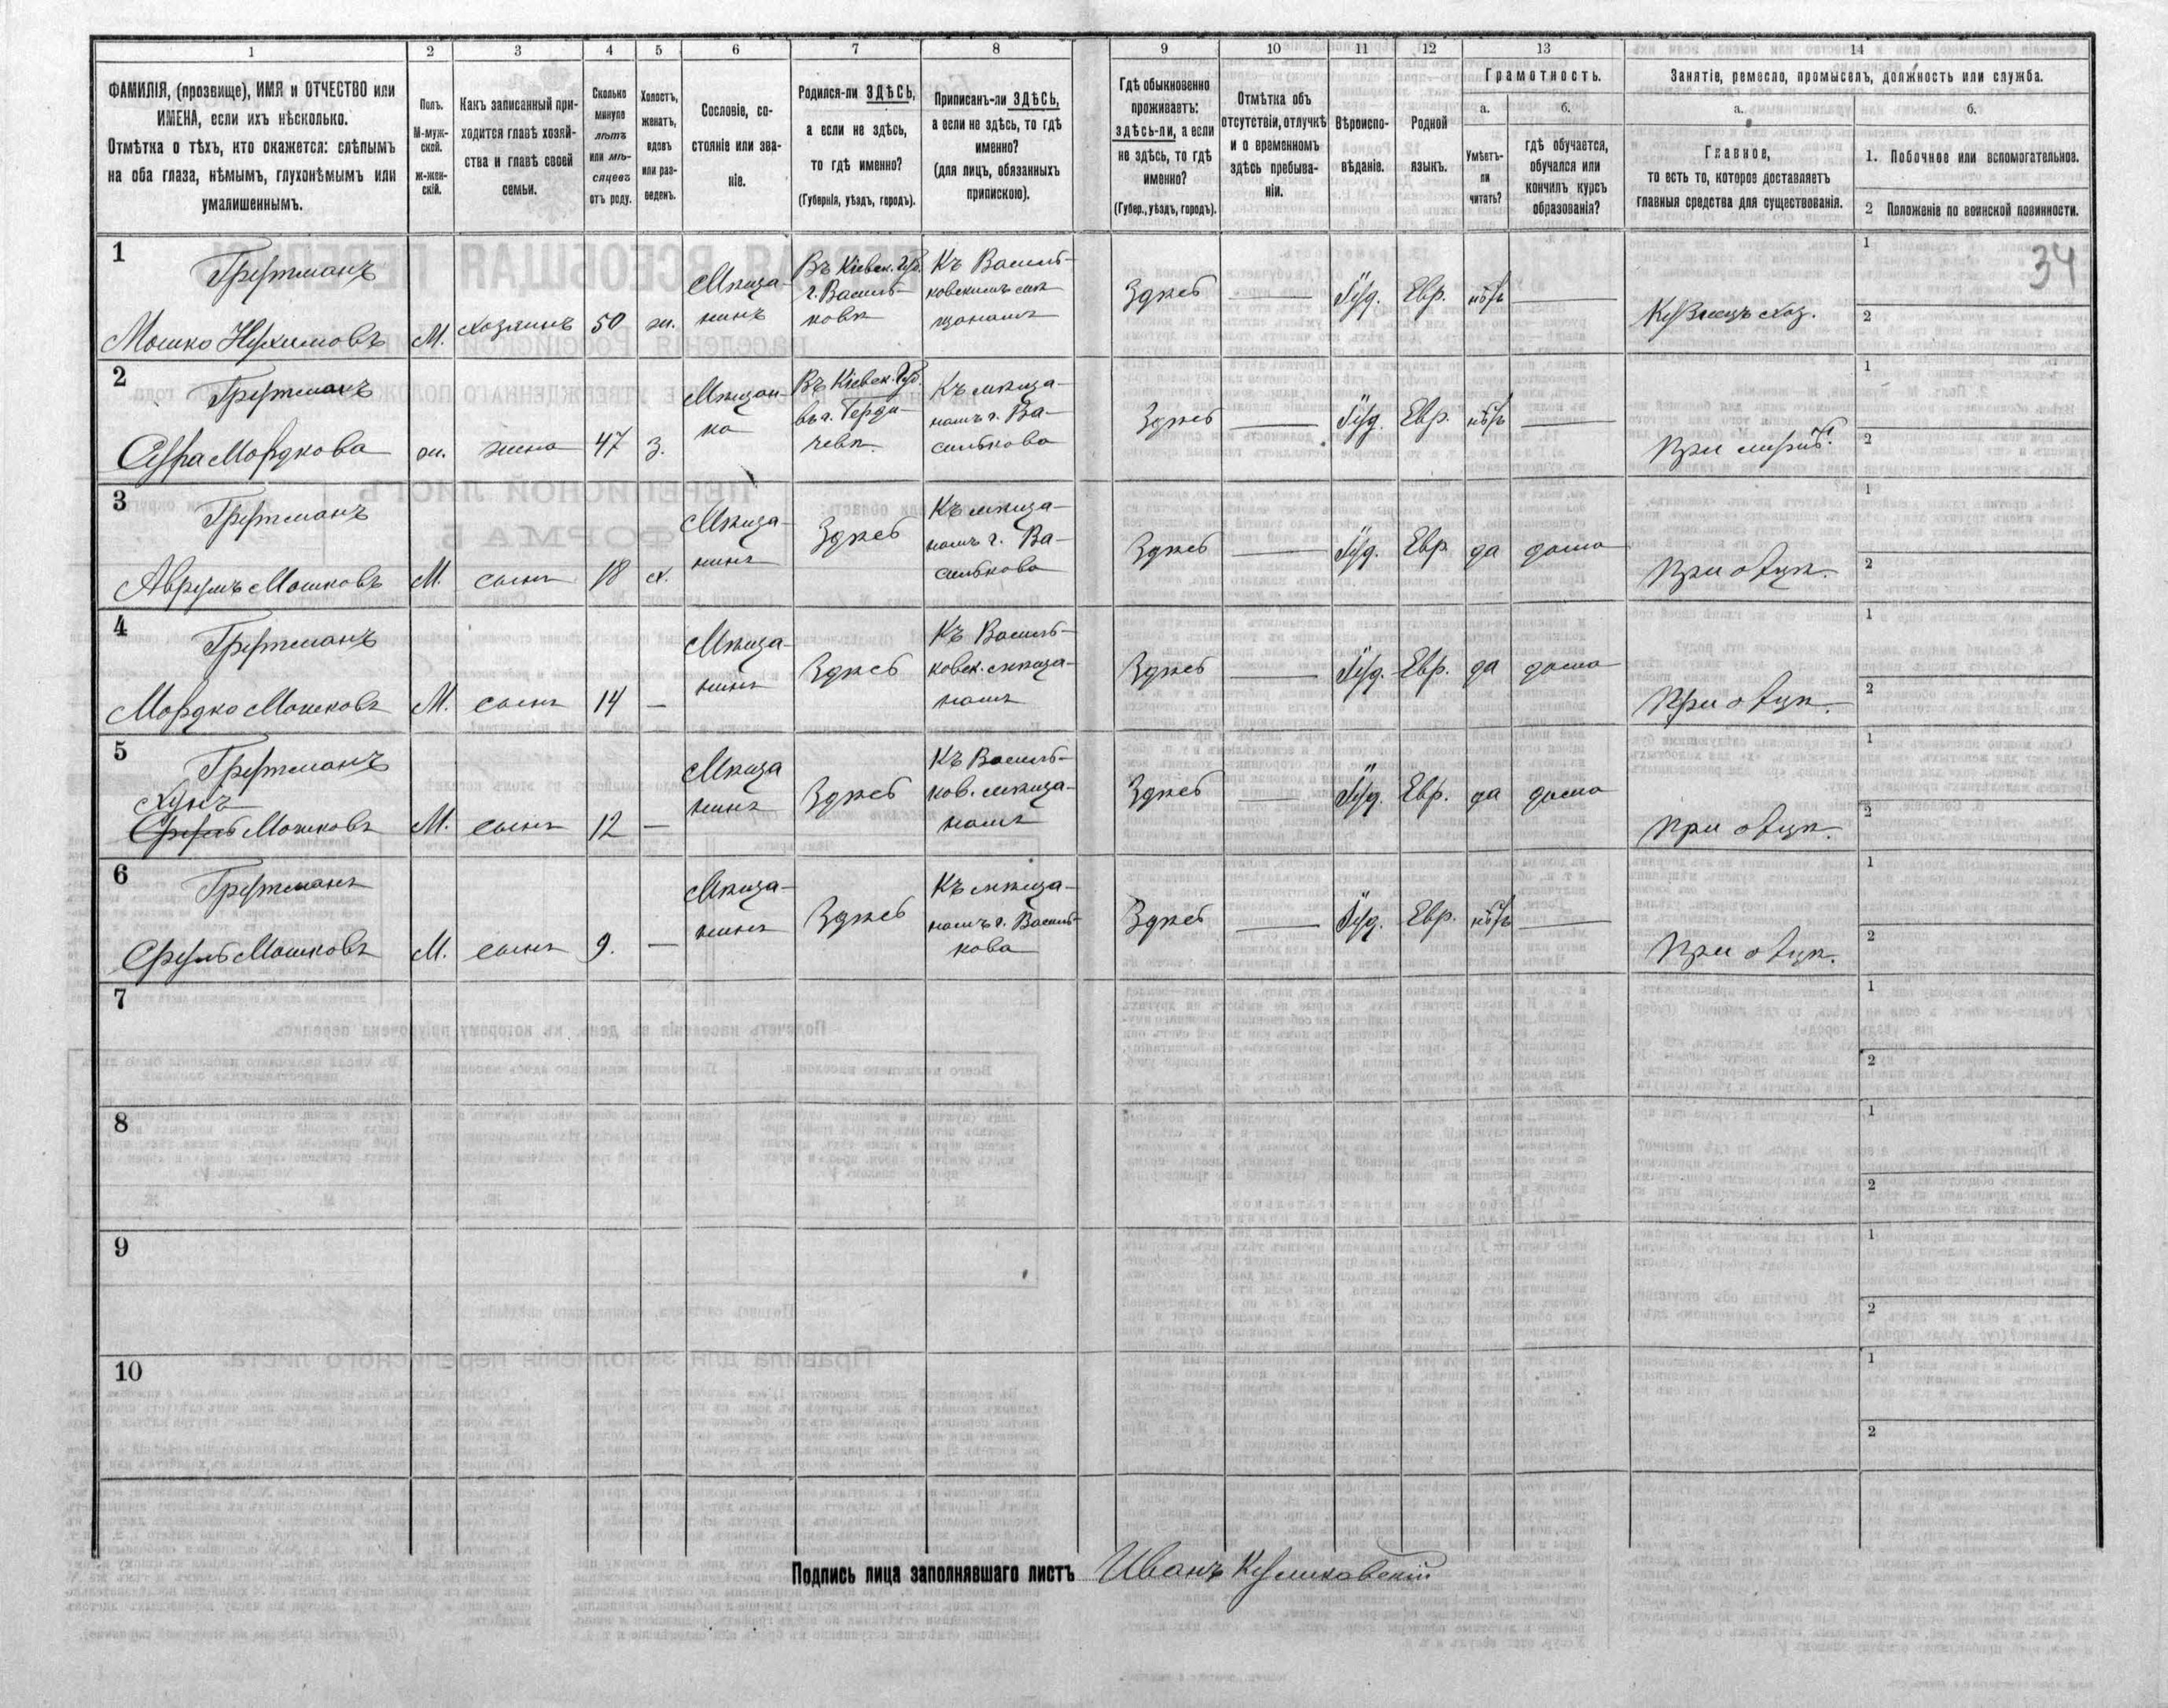 1 2 3 4 5 6 7 8 9 10 11 12 13 14
ФАМИЛІЯ, (прозвище), ИМЯ и ОТЧЕСТВО или
ИМЕНА, если ихъ нѣсколько.
Отмѣтка о тѣхъ, кто окажется: слѣпымъ
на оба глаза, нѣмымъ, глухонѣмымъ или
умалишеннымъ.
Полъ.
М-муж-
ской.
ж-жен-
скій.
Какъ записанный при-
ходится главѣ хозяй-
ства и главѣ своей
семьи.
Сколько
минуло
лѣтъ
или мѣ-
сяцевъ
отъ роду.
Холостъ,
женатъ,
вдовъ
или раз-
веденъ.
Сословіе, со-
стояніе или зва-
ніе.
Родился-ли ЗДѢСЬ,
а если не здѣсь,
то гдѣ именно?
(Губернія, уѣздъ, городъ).
Приписанъ-ли ЗДѢСЬ,
а если не здѣсь, то гдѣ
именно?
(для лицъ, обязанныхъ
припискою).
Гдѣ обыкновенно
проживаетъ:
здѣсь-ли, а если
не здѣсь, то гдѣ
именно?
(Губер., уѣздъ, городъ).
Отмѣтка объ
отсутствіи, отлучкѣ
и о временномъ
здѣсь пребыва-
ніи.
Вѣроиспо-
вѣданіе.
Родной
языкъ.
Грамотность.
а.
Умѣетъ-
ли
читать?
б.
гдѣ обучается,
обучался или
кончилъ курсъ
образованія?
Занятіе, ремесло, промыселъ, должность или служба.
а.
Главное,
то есть то, которое доставляетъ
главныя средства для существованія.
б.
1. Побочное или вспомогательное.
2 Положеніе по воинской повинности.
34
1
Гретманъ
Мошко Нухимовъ
М.
хозяинъ
50
ж.
Мѣща-
нинъ
Въ Кіевск. Губ.
г. Василь-
ковѣ
Къ Василь-
ковскимъ мѣ
щанамъ
Здѣсь
—
Іуд.
Евр.
нѣтъ
—
Кузнецъ хоз.
1
2
2
Мордкова
ж.
жена
47
з.
Мѣщан-
ка
Въ Кіевск. Губ.
въ г. Берди-
чевѣ
Къ мѣща-
намъ г. Ва-
силькова
Здѣсь
—
Іуд.
Евр.
нѣтъ
—
при мужѣ.
1
2
3
Аврумъ Мошковъ
М.
сынъ
18
х.
Мѣща-
нинъ
Здѣсь
Къ мѣща-
намъ г. Ва-
силькова
Здѣсь
—
Іуд.
Евр
да
дома
при отцѣ.
1
2
4
Мордко Мошковъ
М.
сынъ
14
—
Мѣща-
нинъ
Здѣсь
Къ Василь-
ковск. мѣща-
намъ
Здѣсь
—
Іуд.
Евр.
да
дома
При отцѣ.
1
2
5
Хунъ
Сруль Мошковъ
М.
сынъ
12
—
Мѣща
нинъ
Здѣсь
Къ Василь-
ков. мѣща-
намъ
Здѣсь
—
Іуд.
Евр.
да
дома
при отцѣ.
1
2
6
Сруль Мошковъ
М.
сынъ
9.
—
Мѣща-
нинъ
Здѣсь
Къ мѣща-
намъ г. Василь-
кова
Здѣсь
—
Іуд.
Евр.
нѣтъ
—
При отцѣ.
1
2
7
1
2
8
1
2
9
1
2
10
1
2
Подпись лица заполнявшаго листъ Иванъ Куликовскій